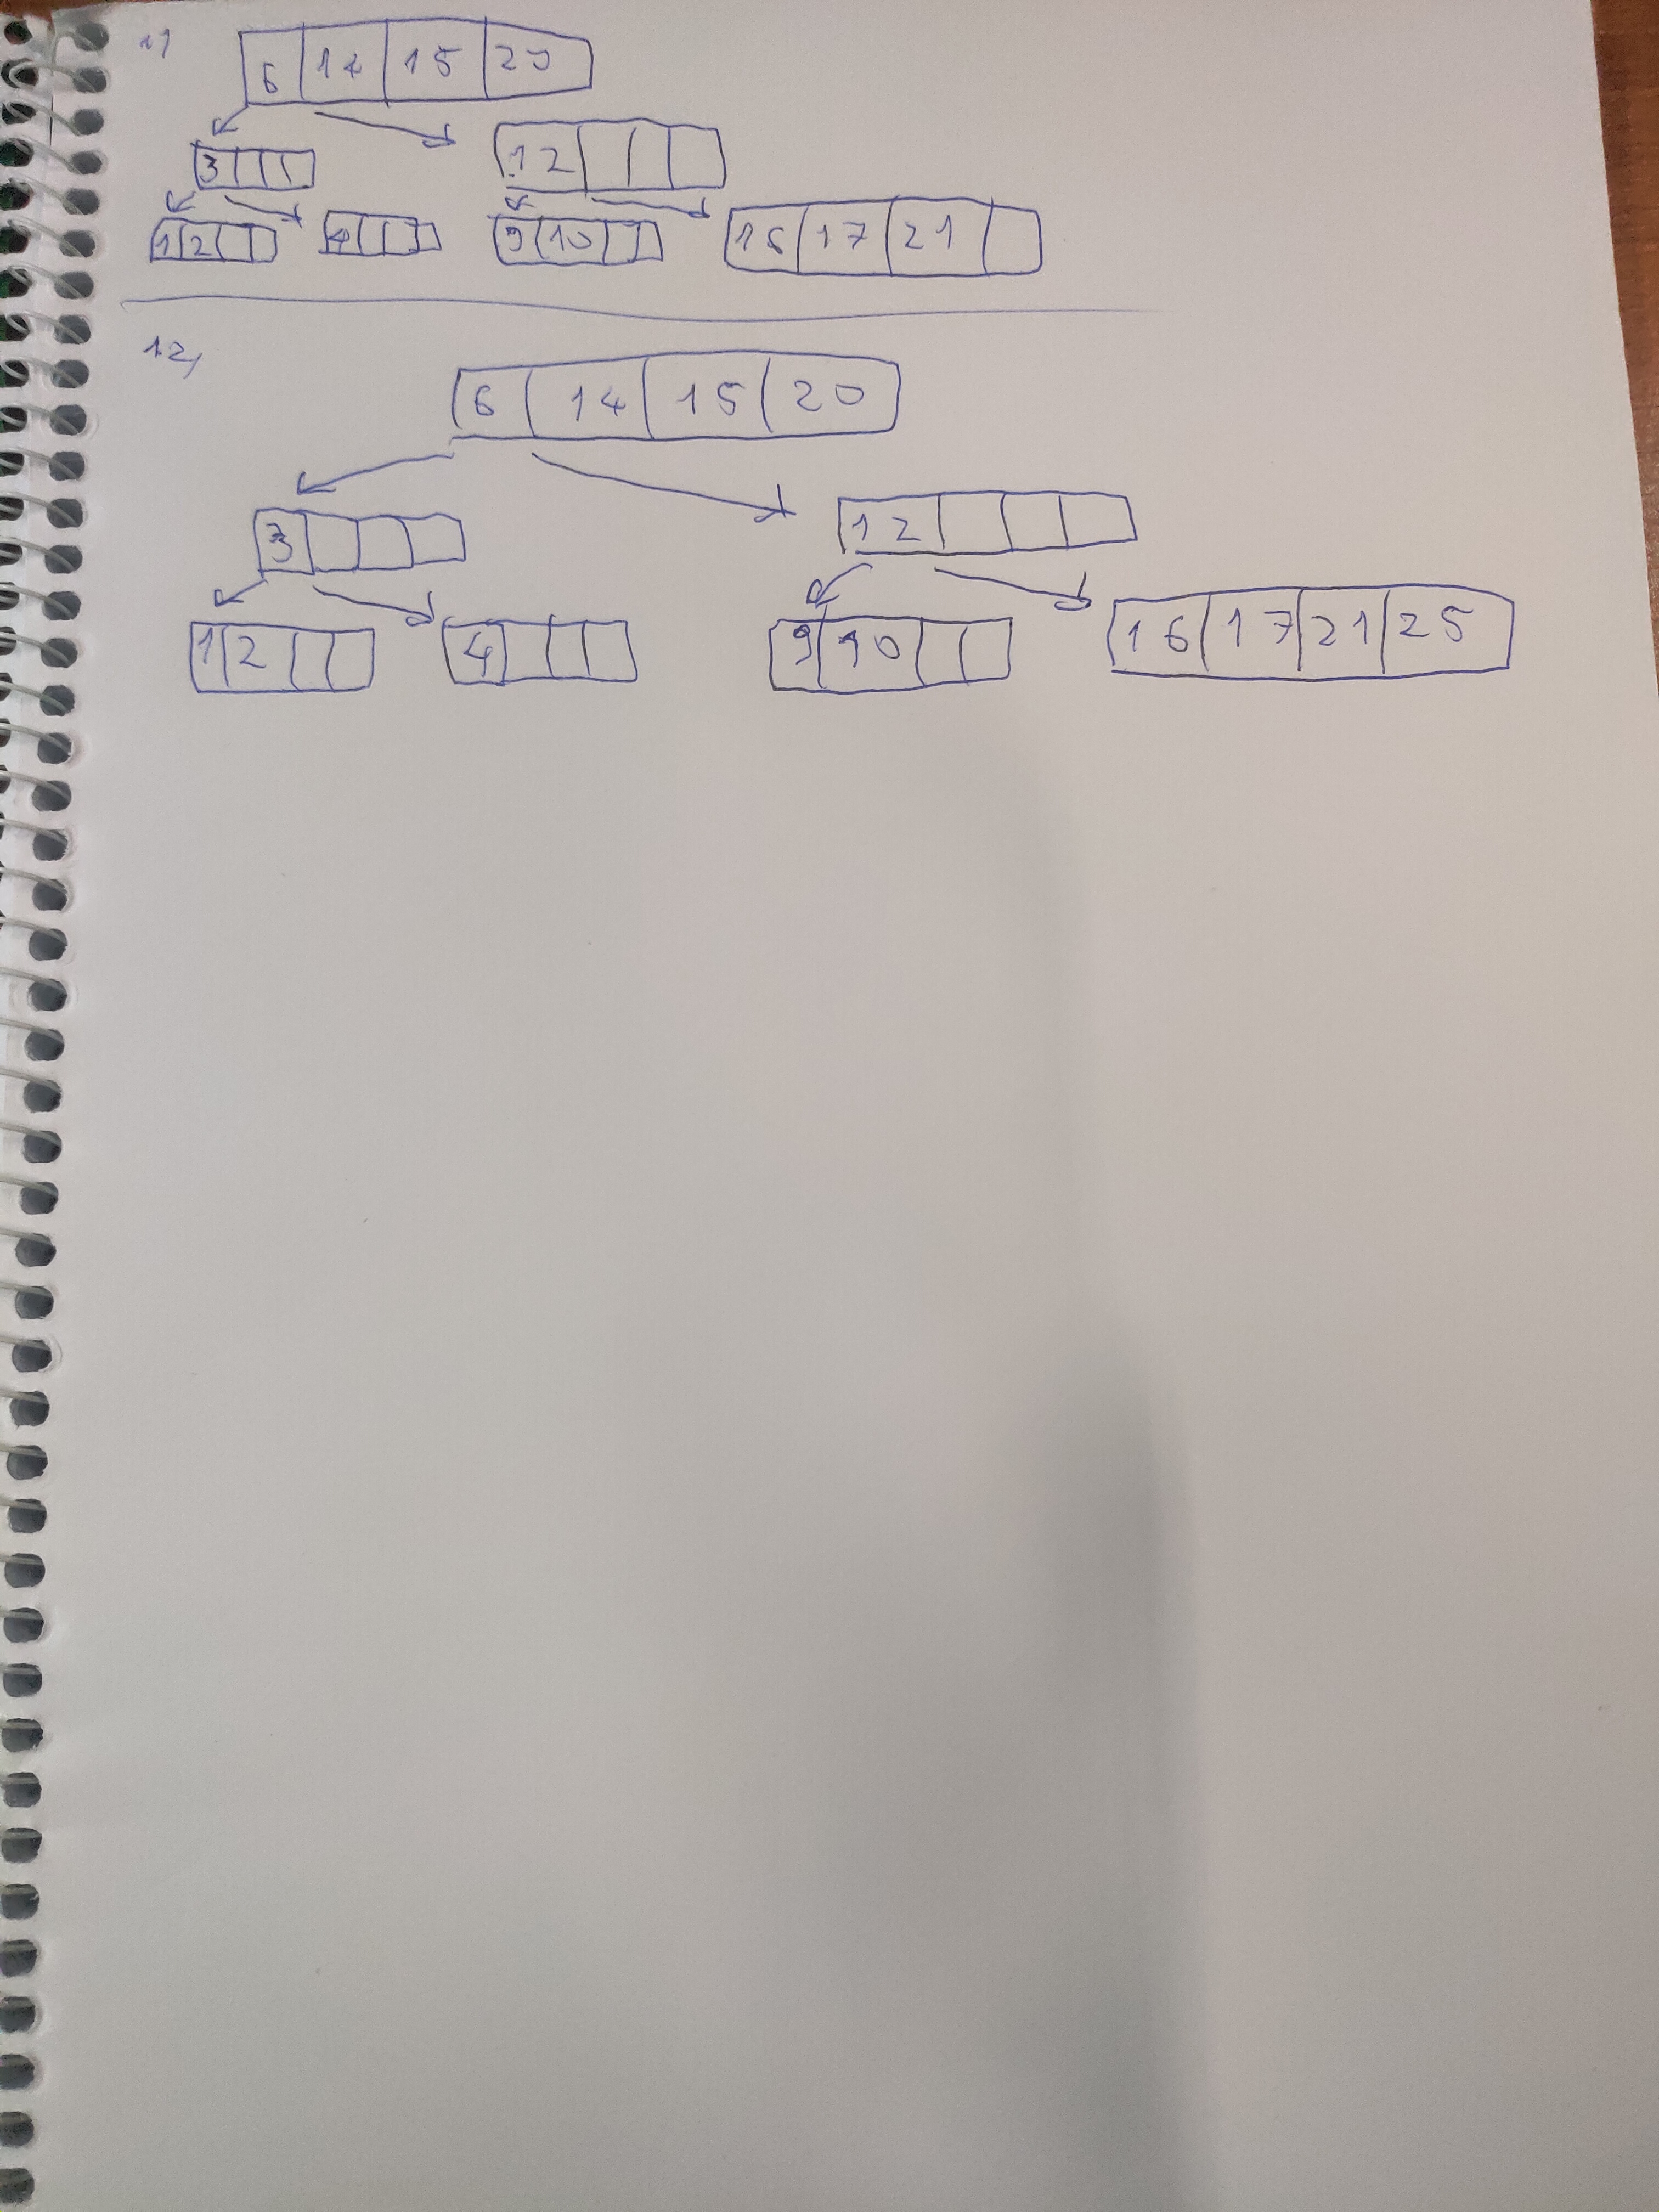 1)
6 14 15 20
3 12
1 2 4 9 10 16 17 21
12,
6 14 15 20
3 12
1 2 4 9 10 16 17 21 25